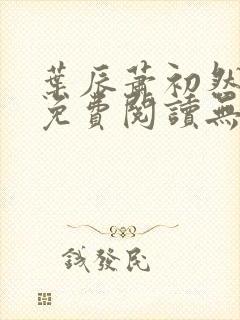 葉辰蕭初然
免費閱讀無
錢發民